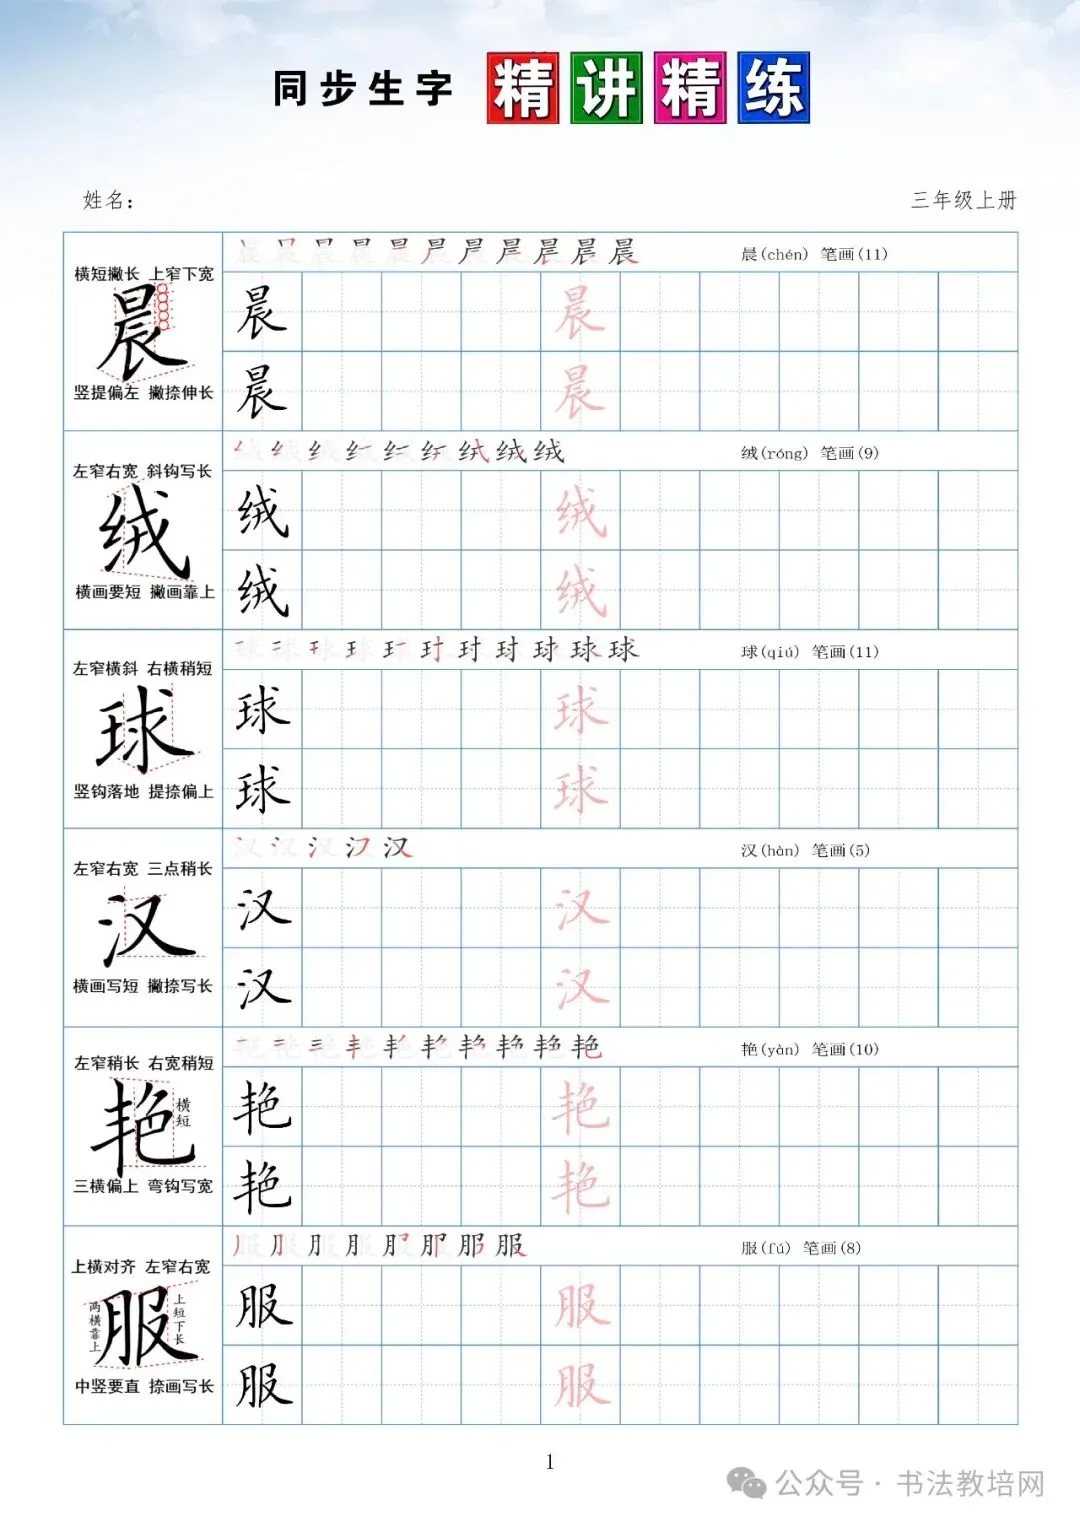 同步生字 精讲精练
姓名：
三年级上册
横短撇长 上窄下宽
晨
竖提偏左 撇捺伸长
晨(chén) 笔画(11)
晨 晨
晨 晨
左窄右宽 斜钩写长
绒
横画要短 撇画靠上
绒(róng) 笔画(9)
绒 绒
绒 绒
左窄横斜 右横稍短
球
竖钩落地 提捺偏上
球(qiú) 笔画(11)
球 球
球 球
左窄右宽 三点稍长
汉
横画写短 撇捺写长
汉(hàn) 笔画(5)
汉 汉
汉 汉
左窄稍长 右宽稍短
艳
横短
三横偏上 弯钩写宽
艳(yàn) 笔画(10)
艳 艳
艳 艳
上横对齐 左窄右宽
两横靠上
服
上短下长
中竖要直 捺画写长
服(fú) 笔画(8)
服 服
服 服
1
公众号·书法教培网